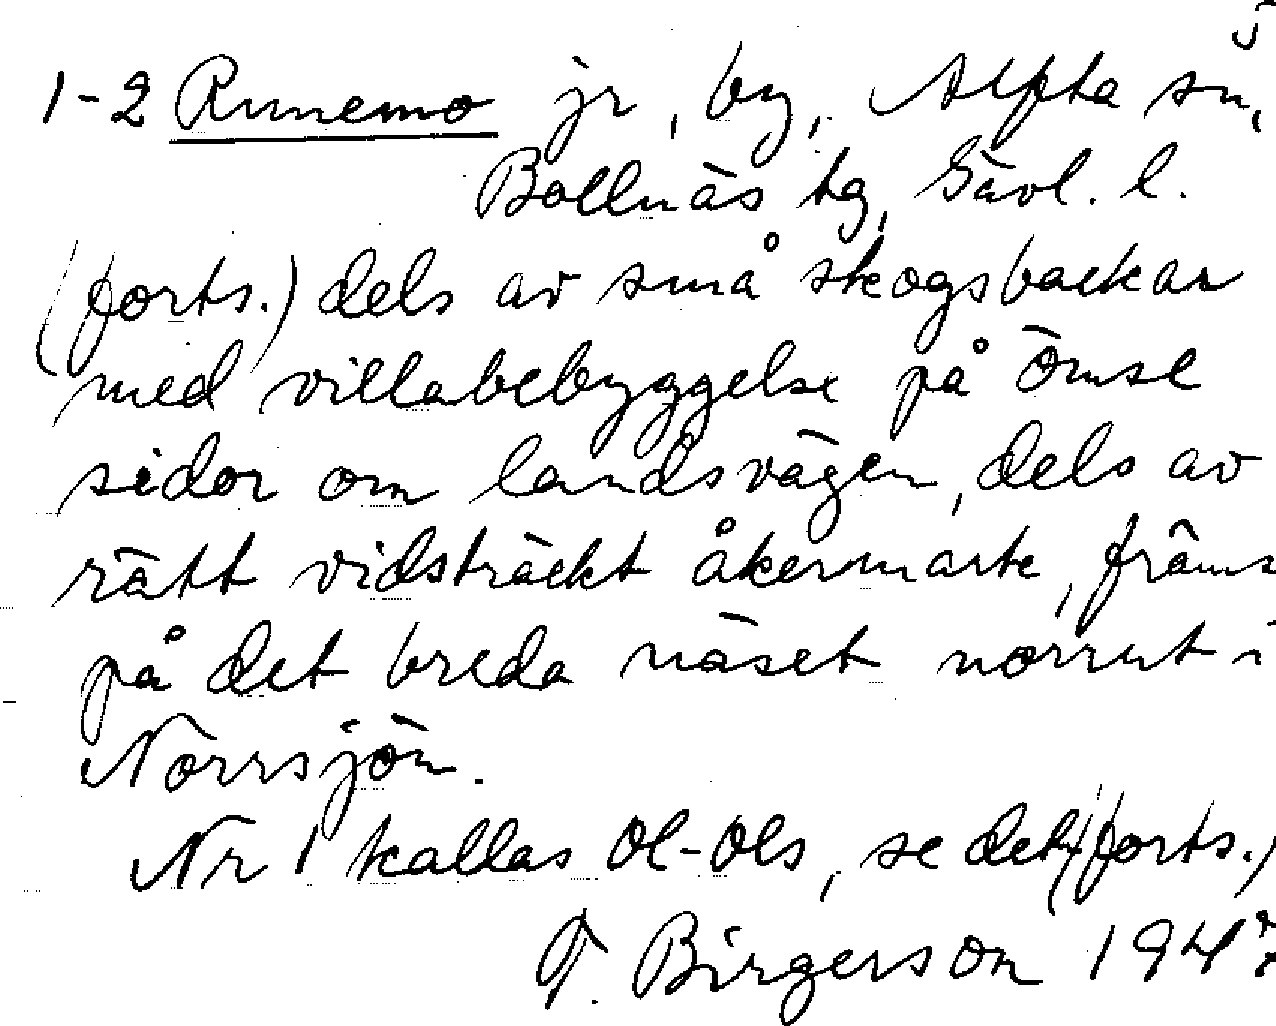 1-2 Runemo jr, by, Alfta sn,
Bollnäs tg, Gävl. l.
(forts.) dels av små skogsbackar
med villabebyggelse på ömse
sidor om landsvägen, dels av
rätt vidsträckt åkermark, främs
på det breda näset norrut i
Norrsjön.
Nr 1 kallas Ol-Ols, se det, (forts.)
F. Birgerson 1947